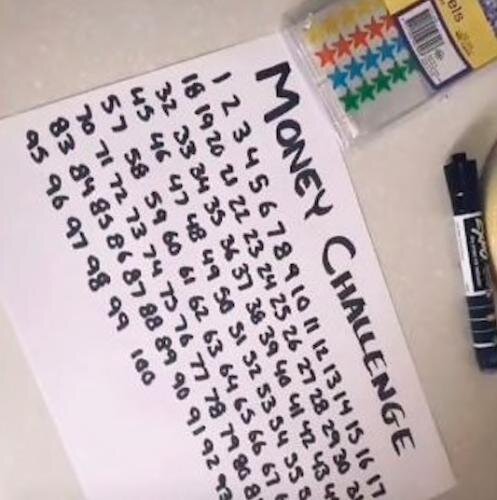 MONEY CHALLENGE
1 2 3 4 5 6 7 8 9 10 11 12 13 14 15 16 17
18 19 20 21 22 23 24 25 26 27 28 29 30
32 33 34 35 36 37 38 39 40 41 42 43
45 46 47 48 49 50 51 52 53 54 55
57 58 59 60 61 62 63 64 65 66 67
70 71 72 73 74 75 76 77 78 79 80
83 84 85 86 87 88 89 90 91 92
95 96 97 98 99 100
els
EXPO